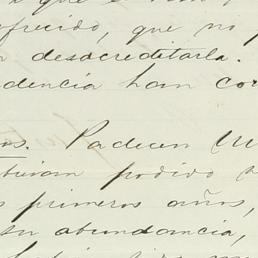 ofrecido, que no p
desacreditarla.
dencia han cor
os. Padecen M
hubieran podido
s primeros años,
su abundancia,